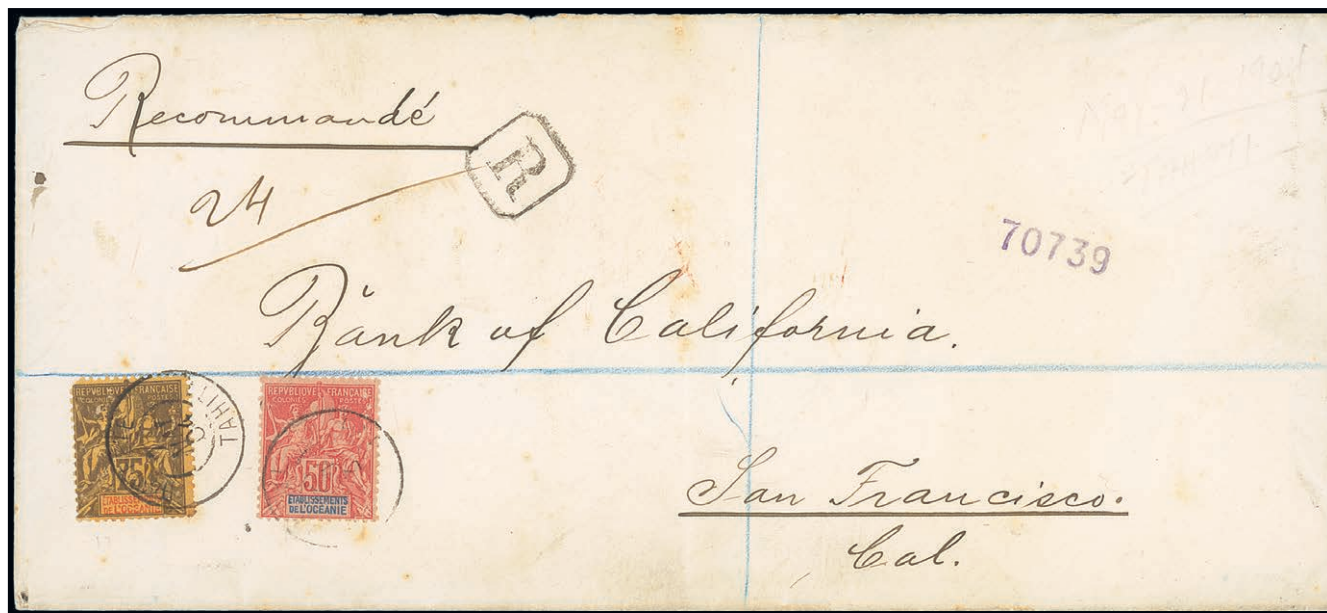 Recommandé
R
24
70739
Bank of California.
REPVBLIQVE FRANÇAISE
COLONIES POSTES
75
ETABLISSEMENTS
DE L'OCÉANIE
TAHITI
REPVBLIQVE FRANÇAISE
COLONIES POSTES
50
ETABLISSEMENTS
DE L'OCÉANIE
San Francisco.
Cal.